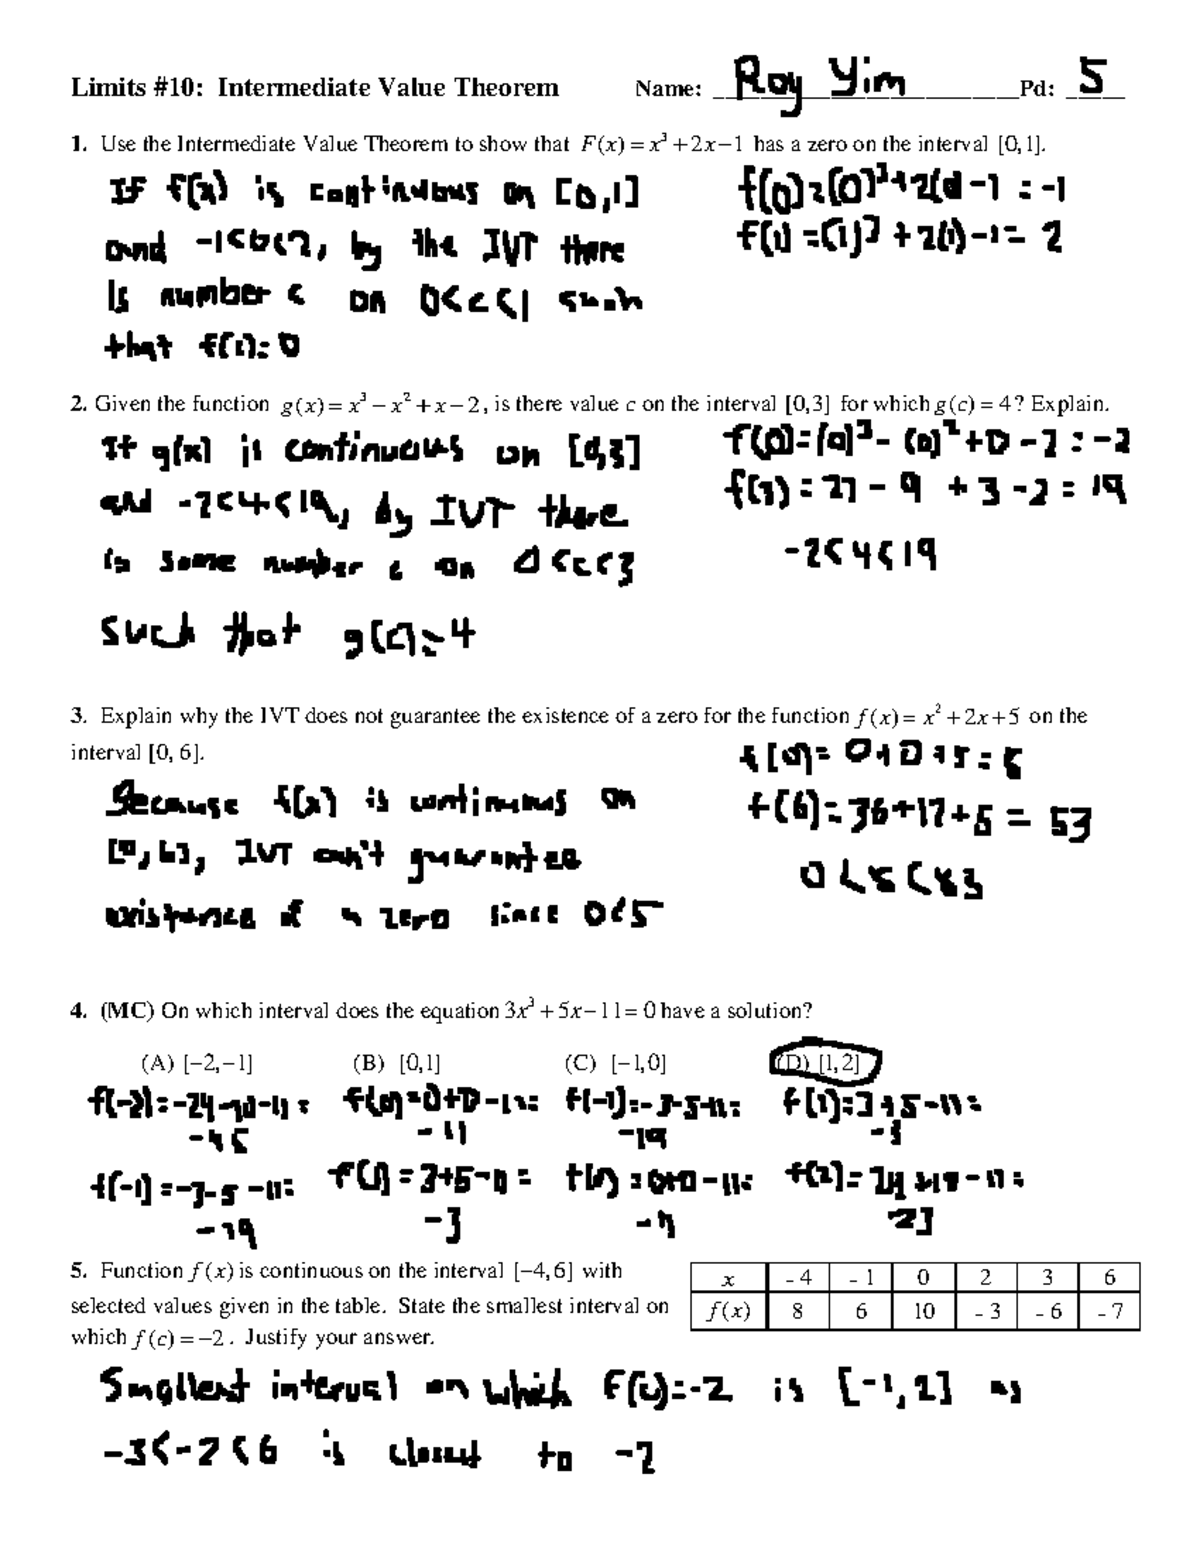 Limits #10: Intermediate Value Theorem Name: Roy Yim Pd: 5
1. Use the Intermediate Value Theorem to show that F(x) = x³ + 2x − 1 has a zero on the interval [0, 1].
If f(x) is continuous on [0,1]
and -1<0<2, by the IVT there
is number c on 0<c<1 such
that f(1)=0
f(0)=(0)³+2(0)-1 = -1
f(1)=(1)³+2(1)-1= 2
2. Given the function g(x) = x³ − x² + x − 2, is there value c on the interval [0,3] for which g(c) = 4? Explain.
If g(x) is continuous on [0,3]
and -2<4<19, by IVT there
is some number c on 0<c<3
such that g(c)=4
f(0)=(0)³-(0)²+0-2=-2
f(3)=27-9+3-2=19
-2<4<19
3. Explain why the IVT does not guarantee the existence of a zero for the function f(x) = x² + 2x + 5 on the
interval [0, 6].
Because f(x) is continuous on
[0,6], IVT can't guarantee
existance of a zero since 0<5
f(0)=0+0+5=5
f(6)=36+12+5=53
0<5<53
4. (MC) On which interval does the equation 3x³ + 5x − 11 = 0 have a solution?
(A) [−2,−1] (B) [0,1] (C) [−1,0] (D) [1,2]
f(-2)=-24-10-11= f(0)=0+0-11= f(-1)=-3-5-11= f(1)=3+5-11=
-45 -11 -19 -3
f(-1)=-3-5-11= f(1)=3+5-11= f(0)=0+0-11= f(2)=24+10-11=
-19 -3 -11 23
5. Function f(x) is continuous on the interval [−4,6] with
selected values given in the table. State the smallest interval on
which f(c) = −2. Justify your answer.
x -4 -1 0 2 3 6
f(x) 8 6 10 -3 -6 -7
Smallest interval on which f(c)=-2 is [-1,2] as
-3<-2<6 is closest to -2